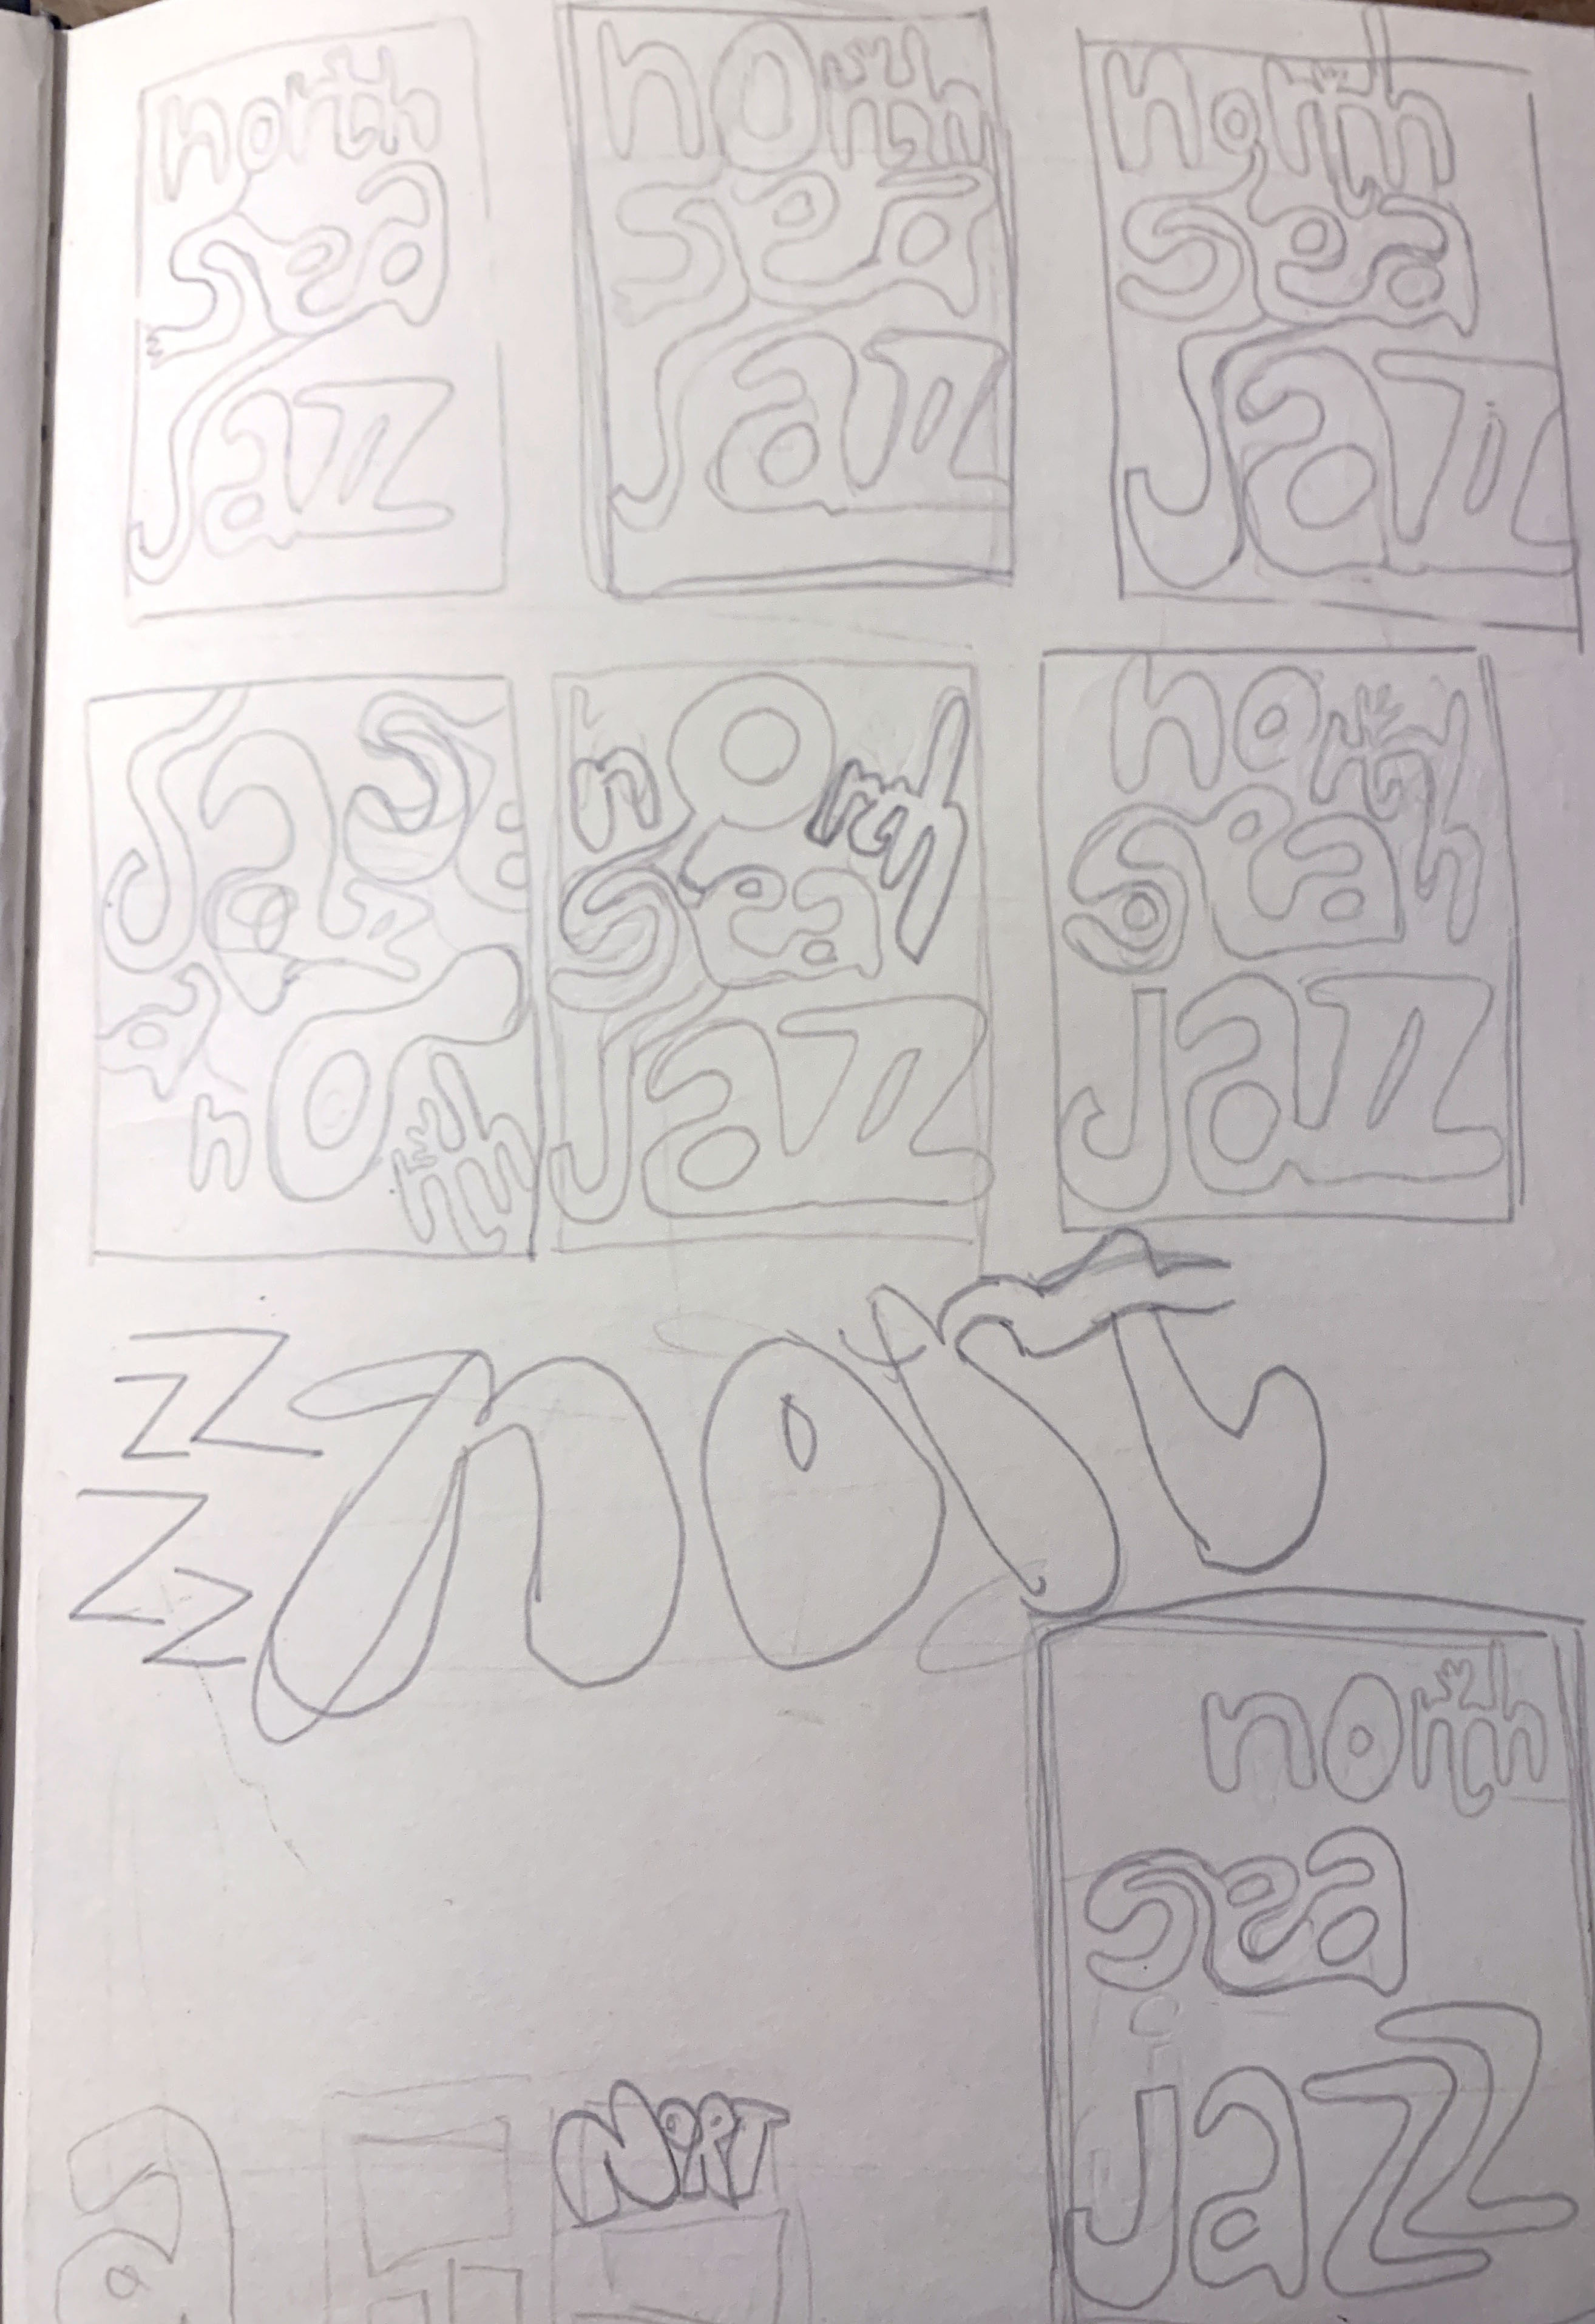 north
sea
jazz
north
sea
jazz
north
sea
jazz
jazz
se
a
north
north
sea
jazz
north
sea
jazz
zz
zz
nort
north
sea
jazz
a
NORT